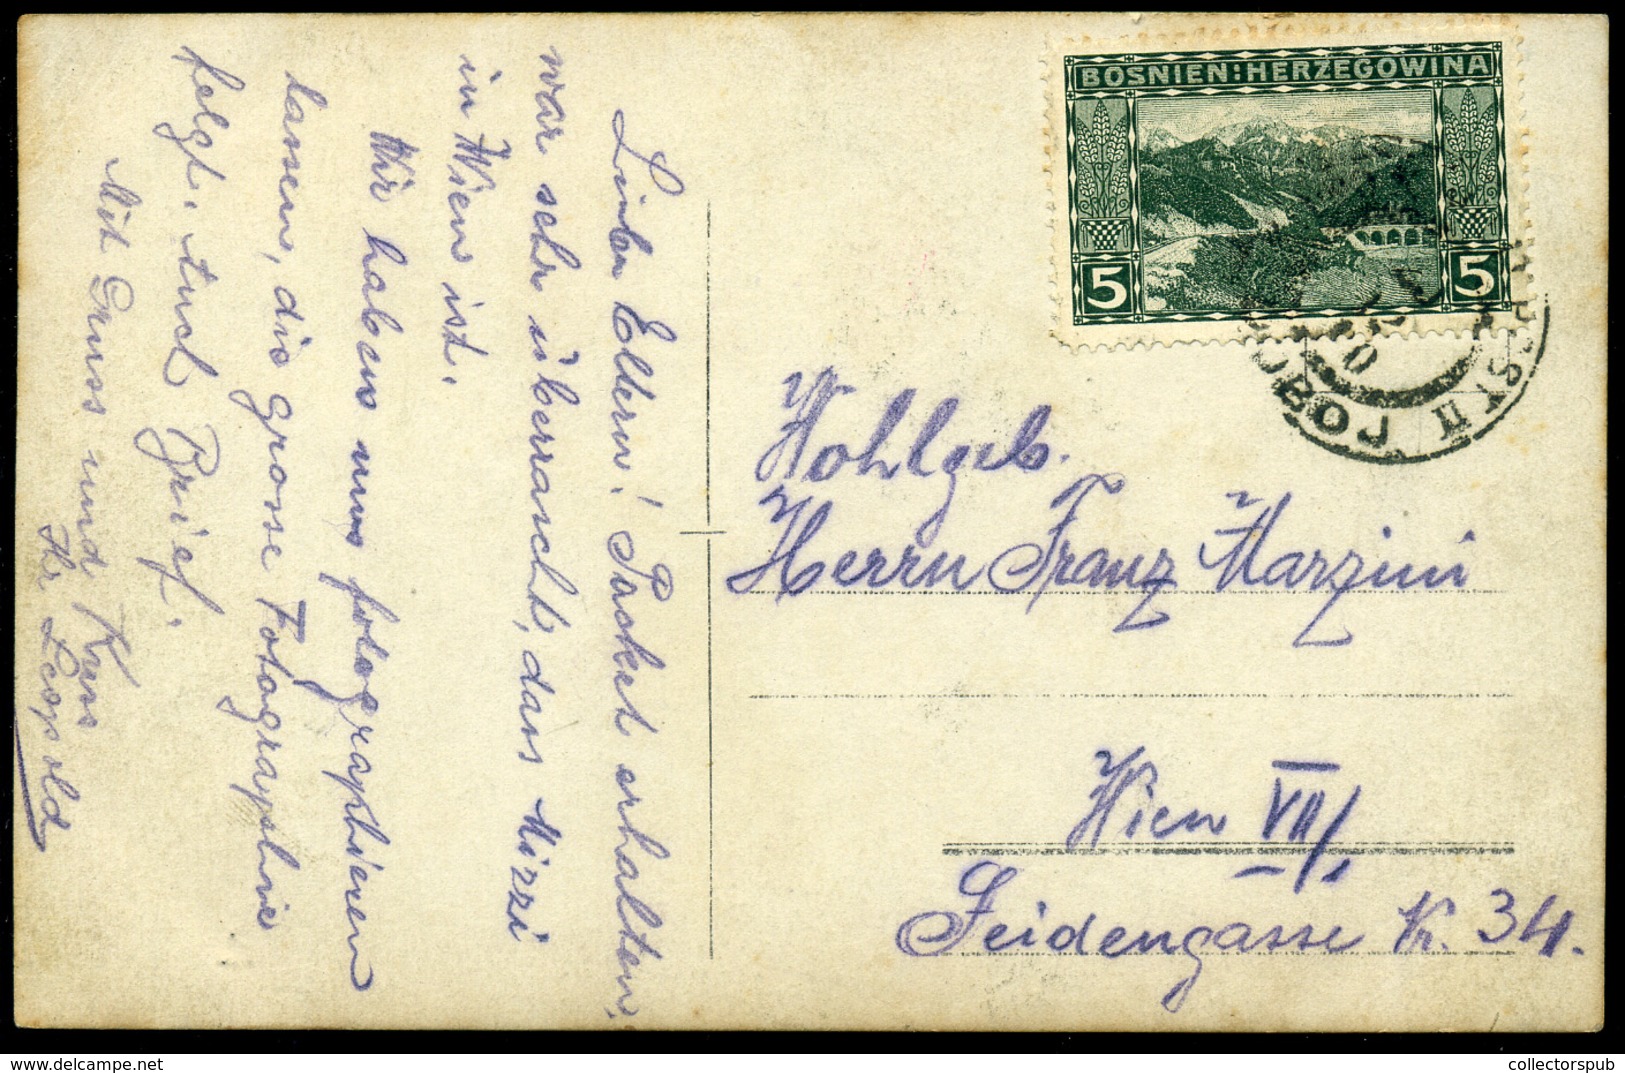 Liebe Eltern! Packet erhalten,
war sehr überrascht, dass Mizzi
in Wien ist.
Wir haben uns fotographieren
lassen, die grosse Fotographie
folgt. Auch Brief.
Mit Gruss und Kuss
Ihr Leopold
BOSNIEN:HERZEGOWINA
5 5
DOBOJ II
Wohlgeb.
Herrn Franz Marzini
Wien VII/1
Seidengasse N. 34.
collectorspub